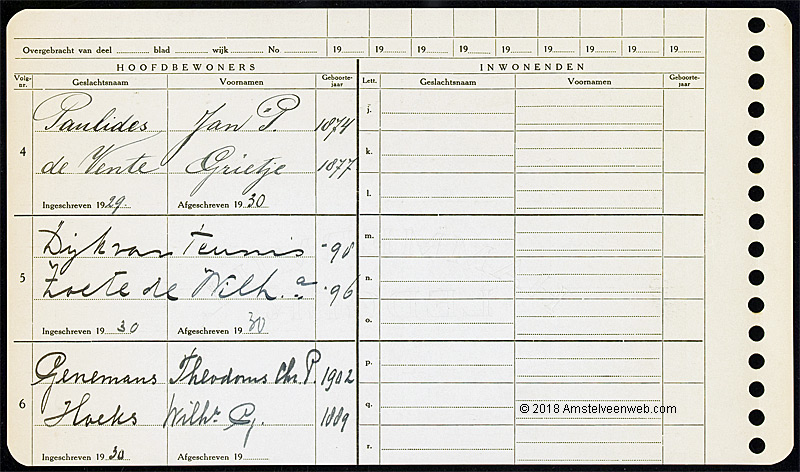 Overgebracht van deel ............ blad ............ wijk ............ No ............ 19...... 19...... 19...... 19...... 19...... 19...... 19...... 19...... 19......
HOOFDBEWONERS INWONENDEN
Volg-nr. Geslachtsnaam Voornamen Geboorte-jaar Lett. Geslachtsnaam Voornamen Geboorte-jaar
Paulides Jan P. 1874 j.
4 de Vente Grietje 1877 k.
Ingeschreven 1929. Afgeschreven 1930 l.
Dijk van Teunis -98 m.
5 Zoete de Wilh.a -96 n.
Ingeschreven 1930 Afgeschreven 1930 o.
Genemans Theodorus Chr. P. 1902 p.
6 Hoeks Wilhr G. 1889 q.
© 2018 Amstelveenweb.com
Ingeschreven 1930 Afgeschreven 19...... r.